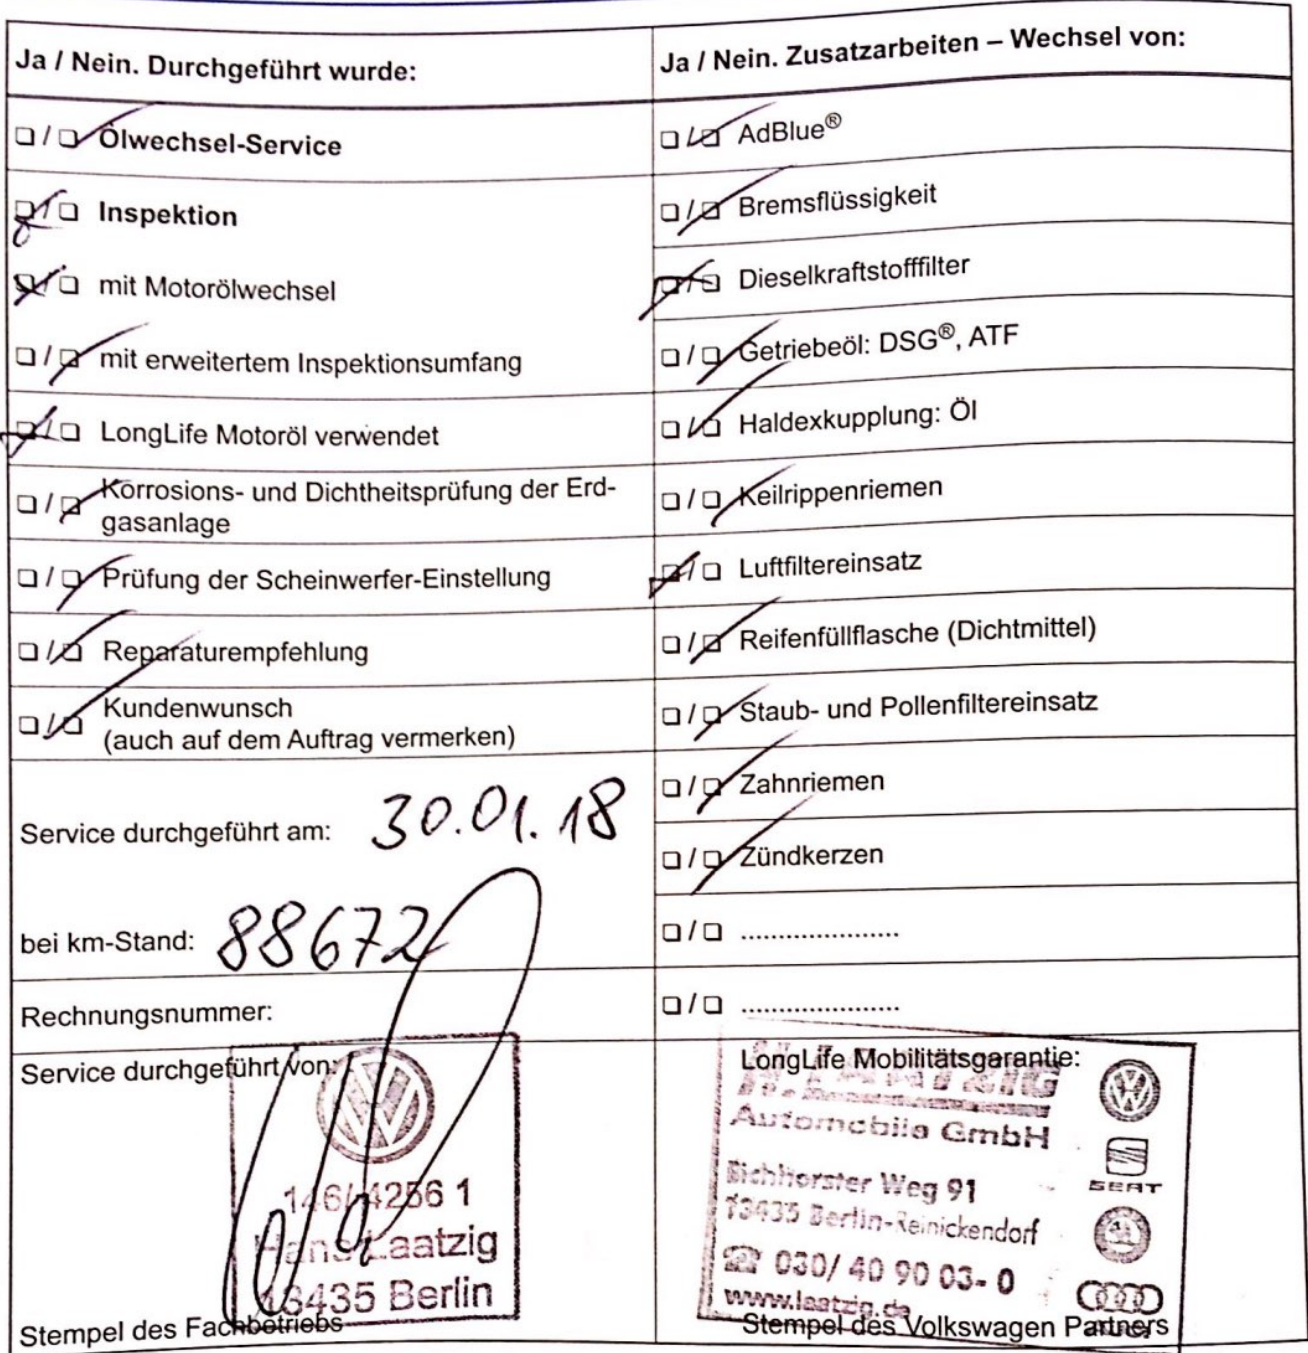 Ja / Nein. Durchgeführt wurde:
❏ / ❏ Ölwechsel-Service
❏ / ❏ Inspektion
❏ / ❏ mit Motorölwechsel
❏ / ❏ mit erweitertem Inspektionsumfang
❏ / ❏ LongLife Motoröl verwendet
❏ / ❏ Korrosions- und Dichtheitsprüfung der Erd-
gasanlage
❏ / ❏ Prüfung der Scheinwerfer-Einstellung
❏ / ❏ Reparaturempfehlung
❏ / ❏ Kundenwunsch
(auch auf dem Auftrag vermerken)
Service durchgeführt am: 30.01.18
bei km-Stand: 88672
Rechnungsnummer:
Service durchgeführt von:
4256 1
Hans Laatzig
13435 Berlin
Stempel des Fachbetriebs
Ja / Nein. Zusatzarbeiten – Wechsel von:
❏ / ❏ AdBlue®
❏ / ❏ Bremsflüssigkeit
❏ / ❏ Dieselkraftstofffilter
❏ / ❏ Getriebeöl: DSG®, ATF
❏ / ❏ Haldexkupplung: Öl
❏ / ❏ Keilrippenriemen
❏ / ❏ Luftfiltereinsatz
❏ / ❏ Reifenfüllflasche (Dichtmittel)
❏ / ❏ Staub- und Pollenfiltereinsatz
❏ / ❏ Zahnriemen
❏ / ❏ Zündkerzen
❏ / ❏ ......................
❏ / ❏ ......................
LongLife Mobilitätsgarantie:
H. LAATZIG
Automobile GmbH
Eichhorster Weg 91
13435 Berlin-Reinickendorf
☎ 030/ 40 90 03- 0
www.laatzig.de
SEAT
Stempel des Volkswagen Partners